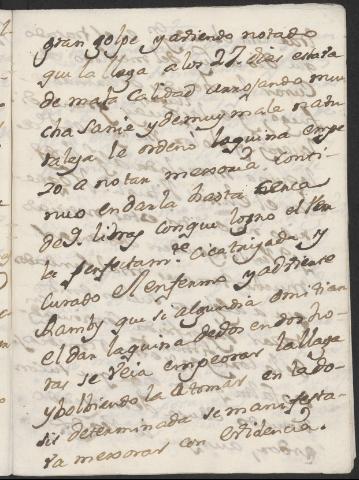 gran golpe y adiendo notado
que la llaga a los 27. dias estaba
de mala calidad arrojando mu
cha sanie y de muy mala natu
raleza le ordenó la quina empe
zo a notar mexoria conti
nuo en darla hasta cerca
de 9. libras con que logro el ver
la perfectam.te cicatrizada y
curado el enfermo y advierte
Ramby que si algun dia omitian
el dar la quina de dos en dos ho
ras se veia empeorar la llaga
y bolbiendola a tomar en la do
sis determinada se manifesta
va mexorar con evidencia.